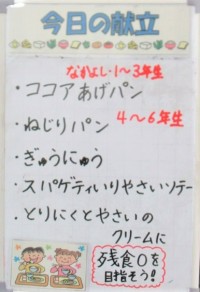 今日の献立
なかよし・1〜3年生
・ココアあげパン
4〜6年生
・ねじりパン
・ぎゅうにゅう
・スパゲティいりやさいソテー
・とりにくとやさいの
クリームに
残食0を
目指そう!